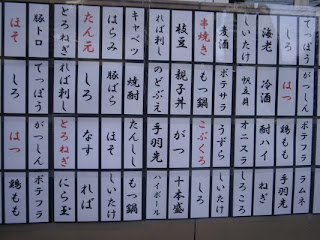 てっぽう
しろ
海老
しいたけ
麦酒
串焼き
枝豆
れば刺し
キャベツ
はらみ
たん元
とろねぎ
豚トロ
ほそ
がつしん
はつ
冷酒
帆立貝
ポテサラ
もつ鍋
親子丼
のどぶえ
焼酎
豚ばら
しろ
れば刺し
てっぽう
しろ
ポテフラ
鶏もも
酎ハイ
オニスラ
うずら
こぶくろ
がつ
手羽先
ほそ
なす
とろねぎ
がつしん
はつ
ラムネ
手羽先
ねぎ
しろころ
しいたけ
しろ
十本盛
ハイボール
もつ鍋
しいたけ
れば
にら玉
ポテフラ
鶏もも